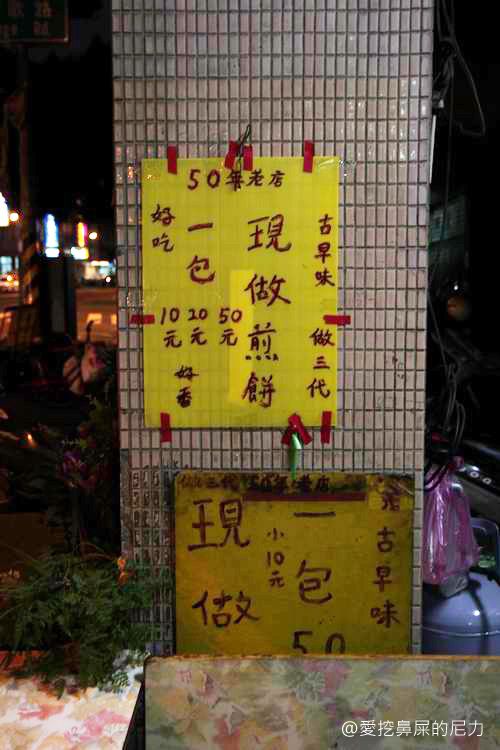 50年老店
古早味 做三代
現做煎餅
一包
10元 20元 50元
好吃
好香
做三代 50年老店
古早味
一包50
小10元
現做
@愛挖鼻屎的尼力